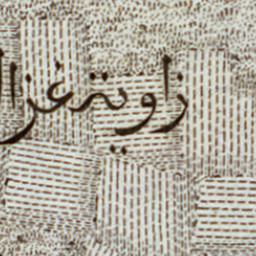 زاوية غزا